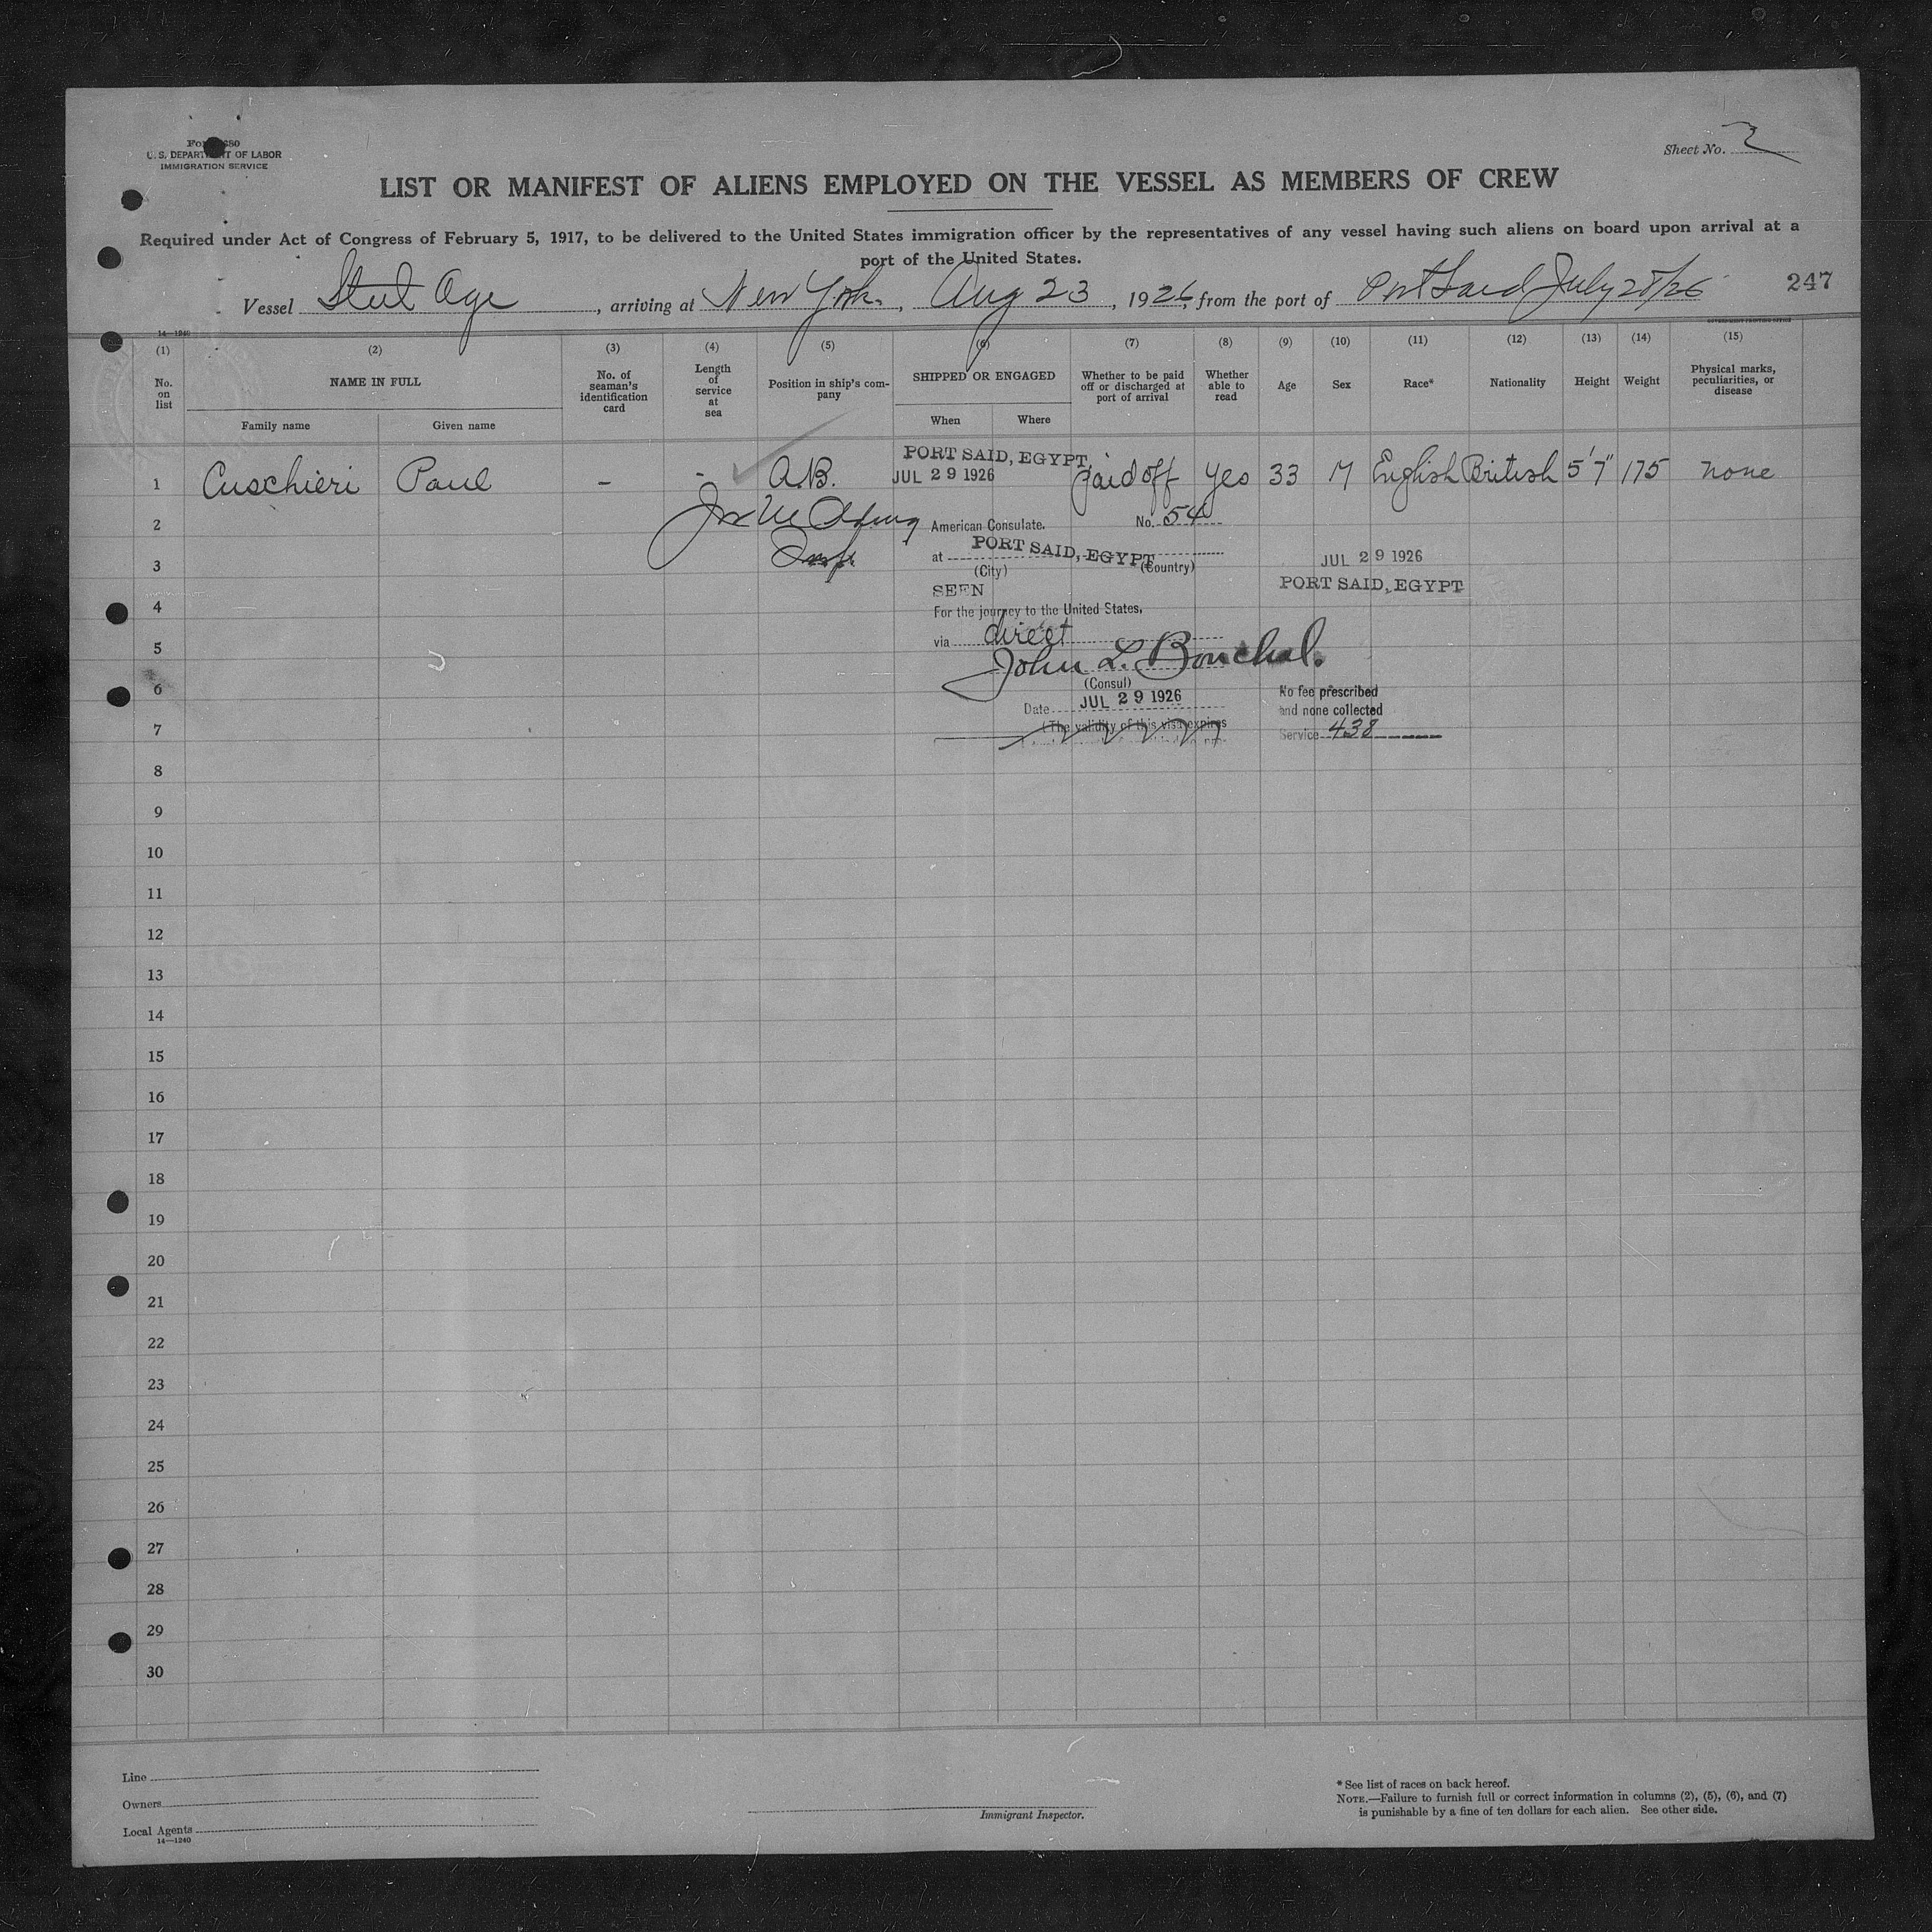 U. S. DEPARTMENT OF LABOR
IMMIGRATION SERVICE
Sheet No. 2
LIST OR MANIFEST OF ALIENS EMPLOYED ON THE VESSEL AS MEMBERS OF CREW
Required under Act of Congress of February 5, 1917, to be delivered to the United States immigration officer by the representatives of any vessel having such aliens on board upon arrival at a
port of the United States.
Vessel Steel Age, arriving at New York, Aug 23, 1926, from the port of Port Said July 28/26
247
14—1240
(1) (2) (3) (4) (5) (6) (7) (8) (9) (10) (11) (12) (13) (14) (15)
No. on list
NAME IN FULL
Family name
Given name
No. of seaman's identification card
Length of service at sea
Position in ship's company
SHIPPED OR ENGAGED
When
Where
Whether to be paid off or discharged at port of arrival
Whether able to read
Age
Sex
Race*
Nationality
Height
Weight
Physical marks, peculiarities, or disease
1 Cuschieri Paul - - A.B. JUL 29 1926 PORT SAID, EGYPT. paid off yes 33 M English British 5'7" 175 none
2
American Consulate. No. 54
3
at PORT SAID, EGYPT
(City) (Country)
JUL 29 1926
PORT SAID, EGYPT
SEEN
4
For the journey to the United States,
via direct
5
John L. Bouchal.
(Consul)
6
Date JUL 29 1926
No fee prescribed
and none collected
Service 438
7
(The validity of this visa expires
8
9
10
11
12
13
14
15
16
17
18
19
20
21
22
23
24
25
26
27
28
29
30
Line
Owners
Local Agents
14—1240
Immigrant Inspector.
* See list of races on back hereof.
NOTE.—Failure to furnish full or correct information in columns (2), (5), (6), and (7)
is punishable by a fine of ten dollars for each alien. See other side.